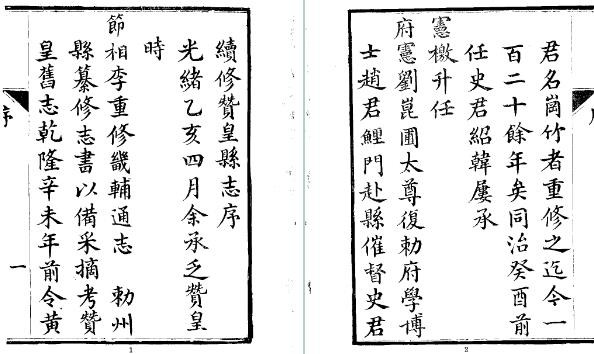 續修贊皇縣志序
光緒乙亥四月余承乏贊皇
時
節相李重修畿輔通志 勅州
縣纂修志書以備采摘考贊
皇舊志乾隆辛未年前令黃
序
一
1
君名崗竹者重修之迄今一
百二十餘年矣同治癸酉前
任史君紹韓屢承
憲檄升任
府憲劉崑圃太尊復勅府學博
士趙君鯉門赴縣催督史君
2